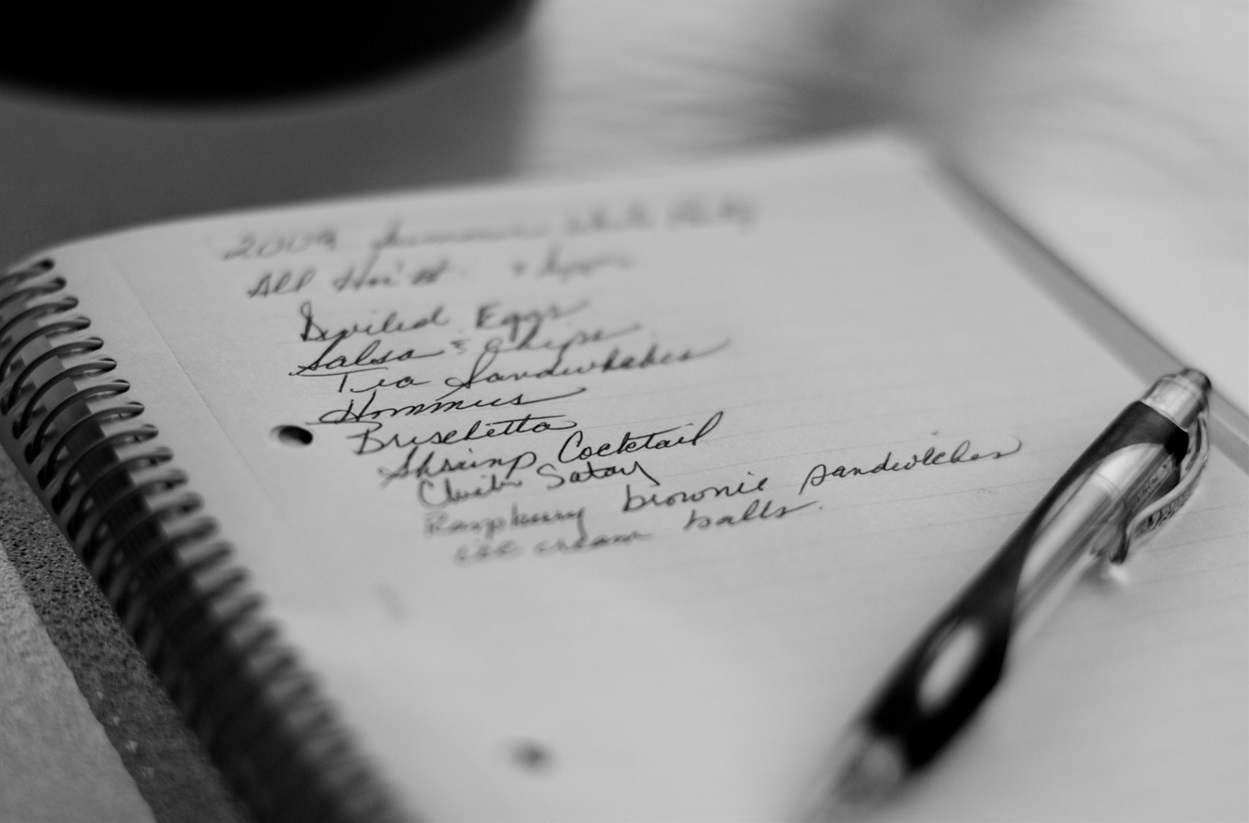 2009 Summer White Party
All
Deviled Eggs
Salsa & Chips
Tea Sandwiches
Hommus
Bruschetta
Shrimp Cocktail
Satay
Raspberry brownie sandwiches
ice cream balls.